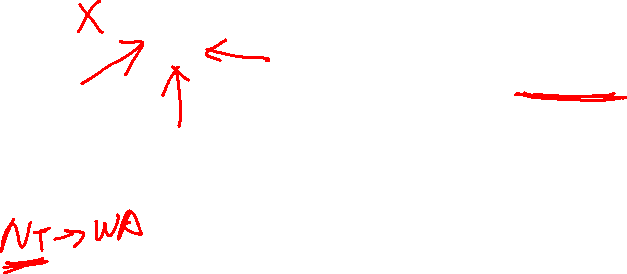 X
NT → WA